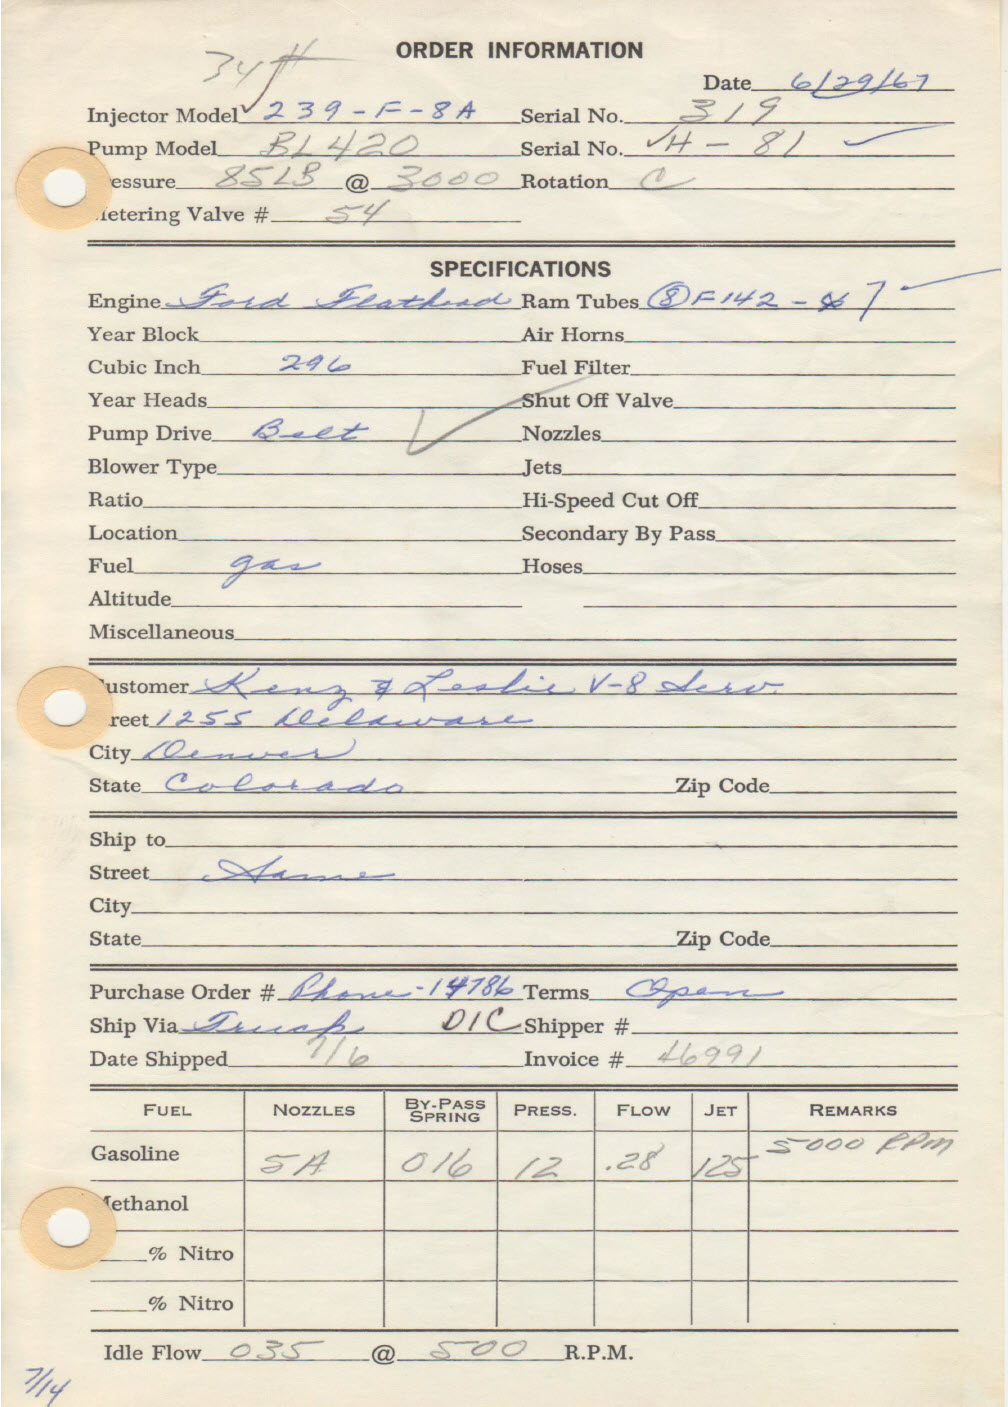 ORDER INFORMATION
34#
Date 6/29/67
Injector Model 239-F-8A Serial No. 319
Pump Model BL420 Serial No. H-81
essure 85LB @ 3000 Rotation C
etering Valve # 54
SPECIFICATIONS
Engine Ford Flathead Ram Tubes (8) F142-7
Year Block Air Horns
Cubic Inch 296 Fuel Filter
Year Heads Shut Off Valve
Pump Drive Belt Nozzles
Blower Type Jets
Ratio Hi-Speed Cut Off
Location Secondary By Pass
Fuel gas Hoses
Altitude
Miscellaneous
ustomer Kenz & Leslie V-8 Serv.
reet 1255 Delaware
City Denver
State Colorado Zip Code
Ship to
Street Same
City
State Zip Code
Purchase Order # Phone-14786 Terms Open
Ship Via Truck DIC Shipper #
Date Shipped 7/6 Invoice # 46991
FUEL NOZZLES BY-PASS SPRING PRESS. FLOW JET REMARKS
Gasoline 5A 016 12 .28 125 5000 RPM
Methanol
% Nitro
% Nitro
Idle Flow 035 @ 500 R.P.M.
7/14